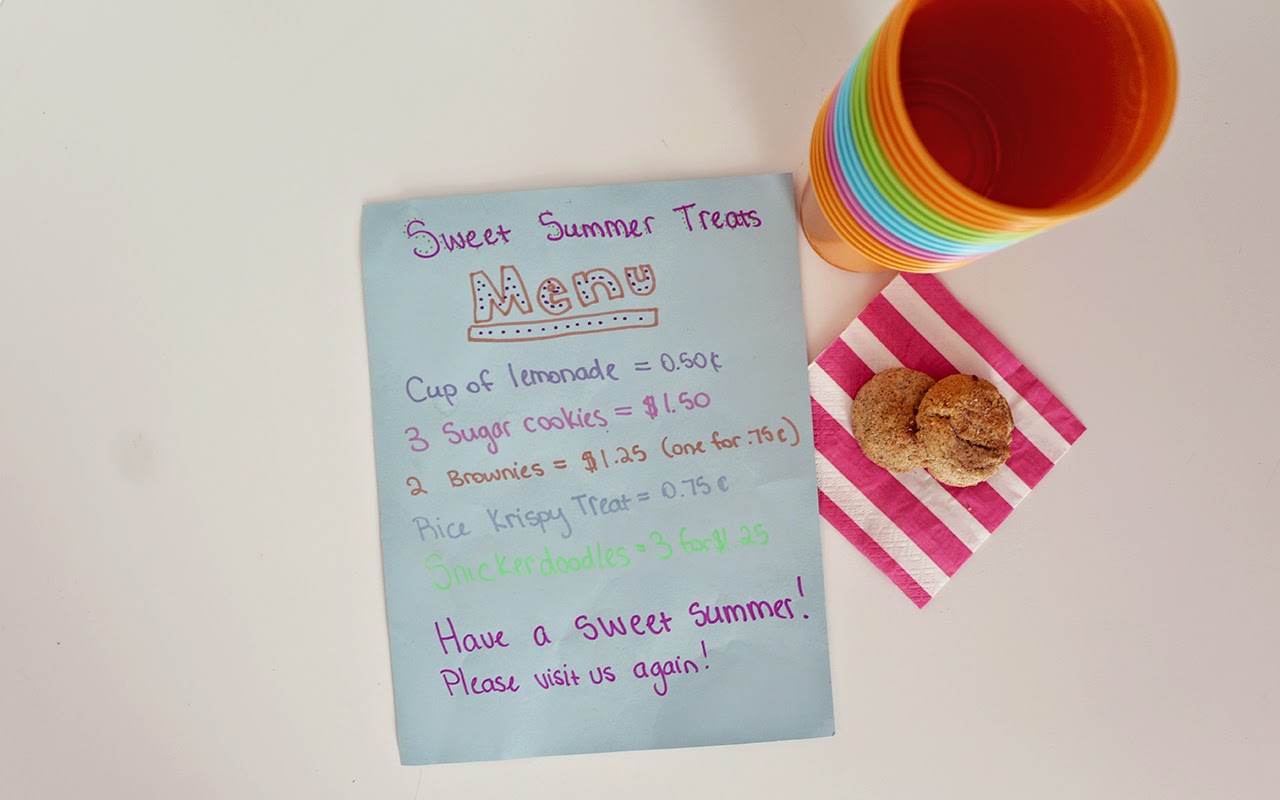 Sweet Summer Treats
Menu
Cup of lemonade = 0.50¢
3 Sugar cookies = $1.50
2 Brownies = $1.25 (one for .75¢)
Rice Krispy Treat = 0.75¢
Snickerdoodles = 3 for $1.25
Have a sweet summer!
Please visit us again!